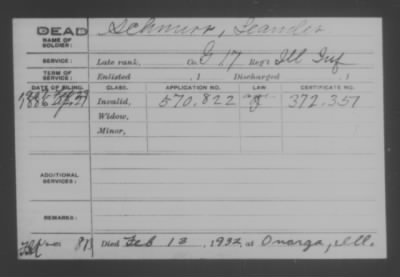 DEAD Schmurr, Leander
NAME OF
SOLDIER:
SERVICE: Late rank, Co. G 17 Reg't Ill Inf
TERM OF
SERVICE: Enlisted , 1 Discharged , 1
DATE OF FILING. CLASS. APPLICATION NO. LAW CERTIFICATE NO.
1886 Invalid, 570.822 372.351
Widow,
Minor,
ADDITIONAL
SERVICES:
REMARKS:
Died Feb 12, 1932, at Onarga, Ill.